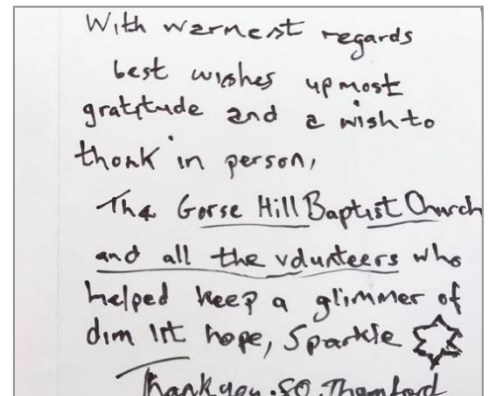 With warmest regards
best wishes upmost
gratitude and a wish to
thank in person,
The Gorse Hill Baptist Church
and all the volunteers who
helped keep a glimmer of
dim lit hope, Sparkle
Thank you. SO.